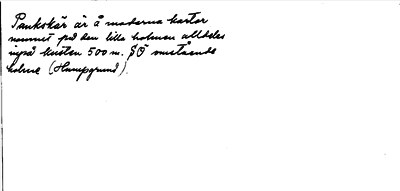 Pankokär är å moderna kartor
namnet på den lilla holmen alldeles
invid kusten 500 m. SÖ omstående
holme (Hampgrund).